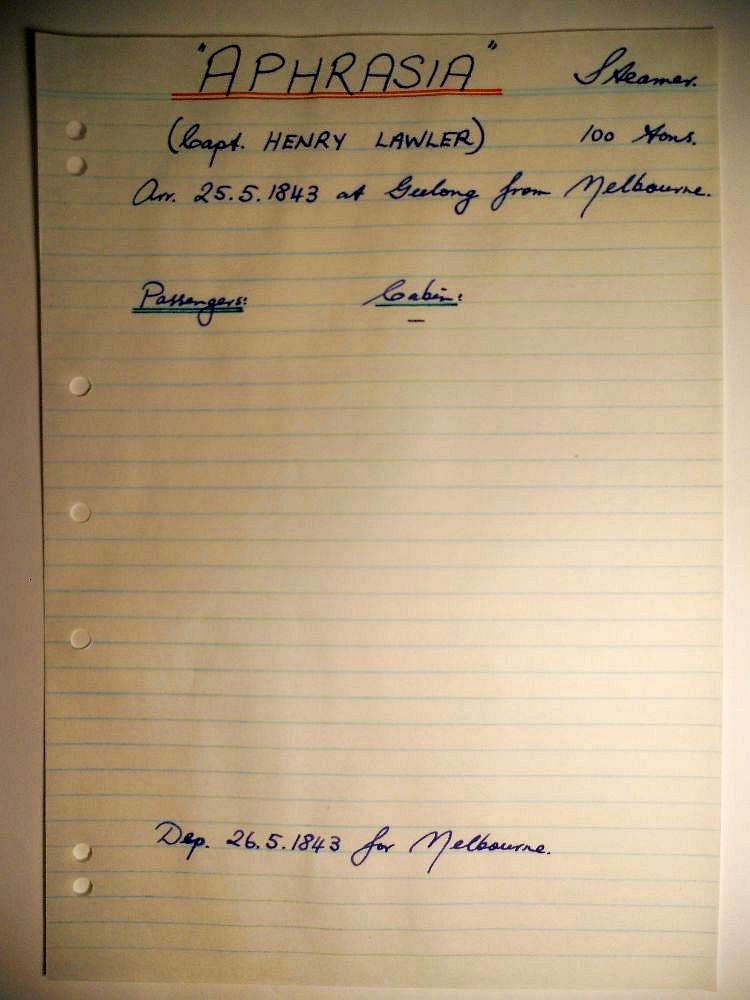 "APHRASIA" Steamer.
(Capt. HENRY LAWLER) 100 tons.
Arr. 25.5.1843 at Geelong from Melbourne.
Passengers: Cabin:
—
Dep. 26.5.1843 for Melbourne.